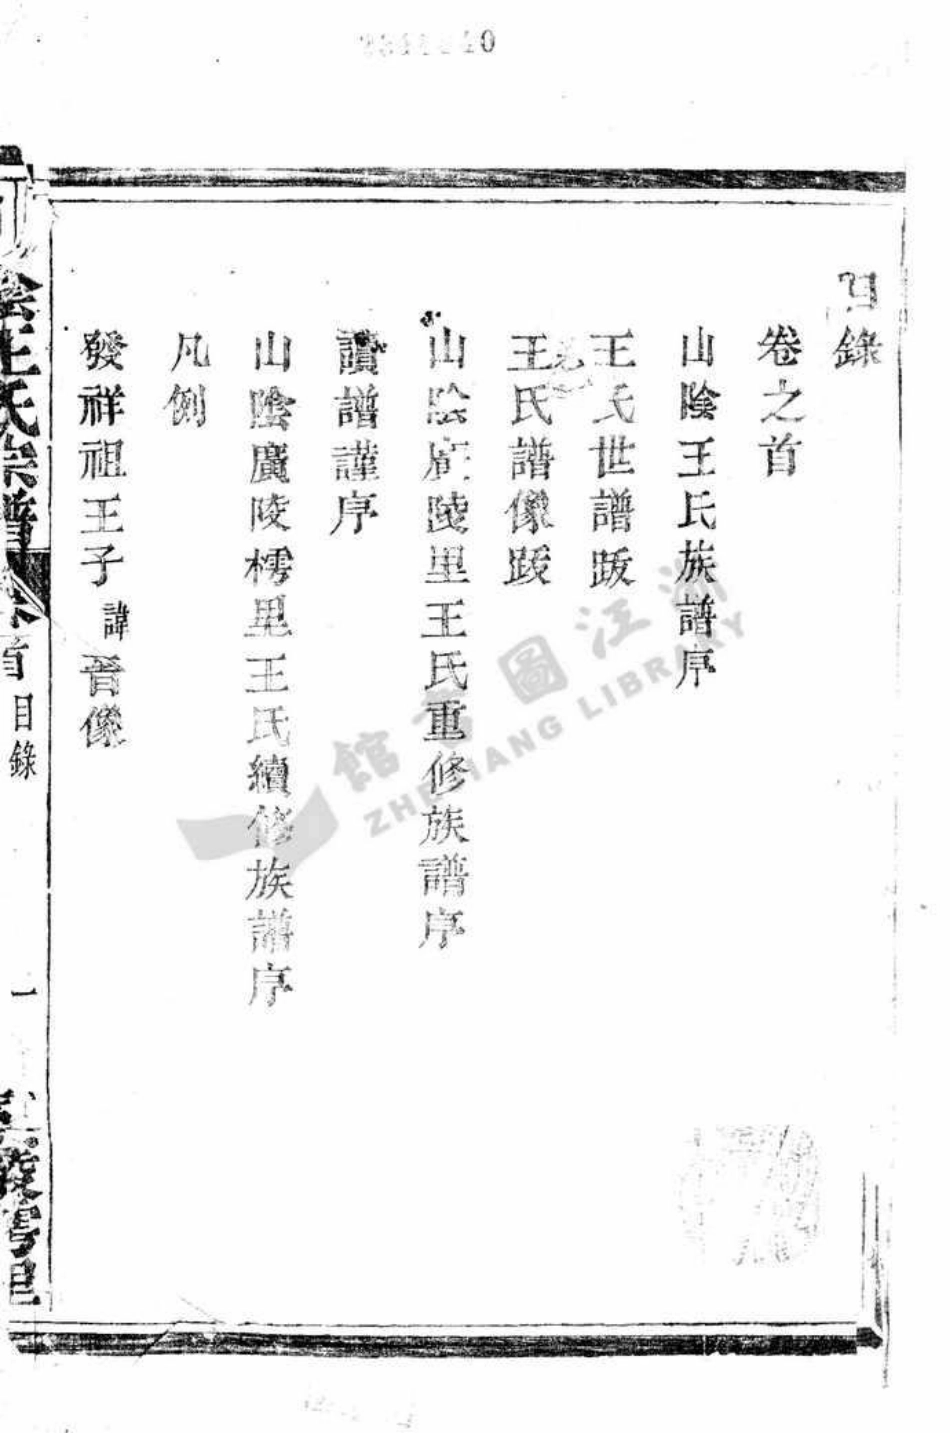 目錄
卷之首
山陰王氏族譜序
王氏世譜跋
王氏譜像跋
山陰廣陵里王氏重修族譜序
讀譜謹序
山陰廣陵樗里王氏續修族譜序
凡例
發祥祖王子諱晉像
陰王氏宗譜
首
目錄
一
浙江圖書館
ZHEJIANG LIBRARY